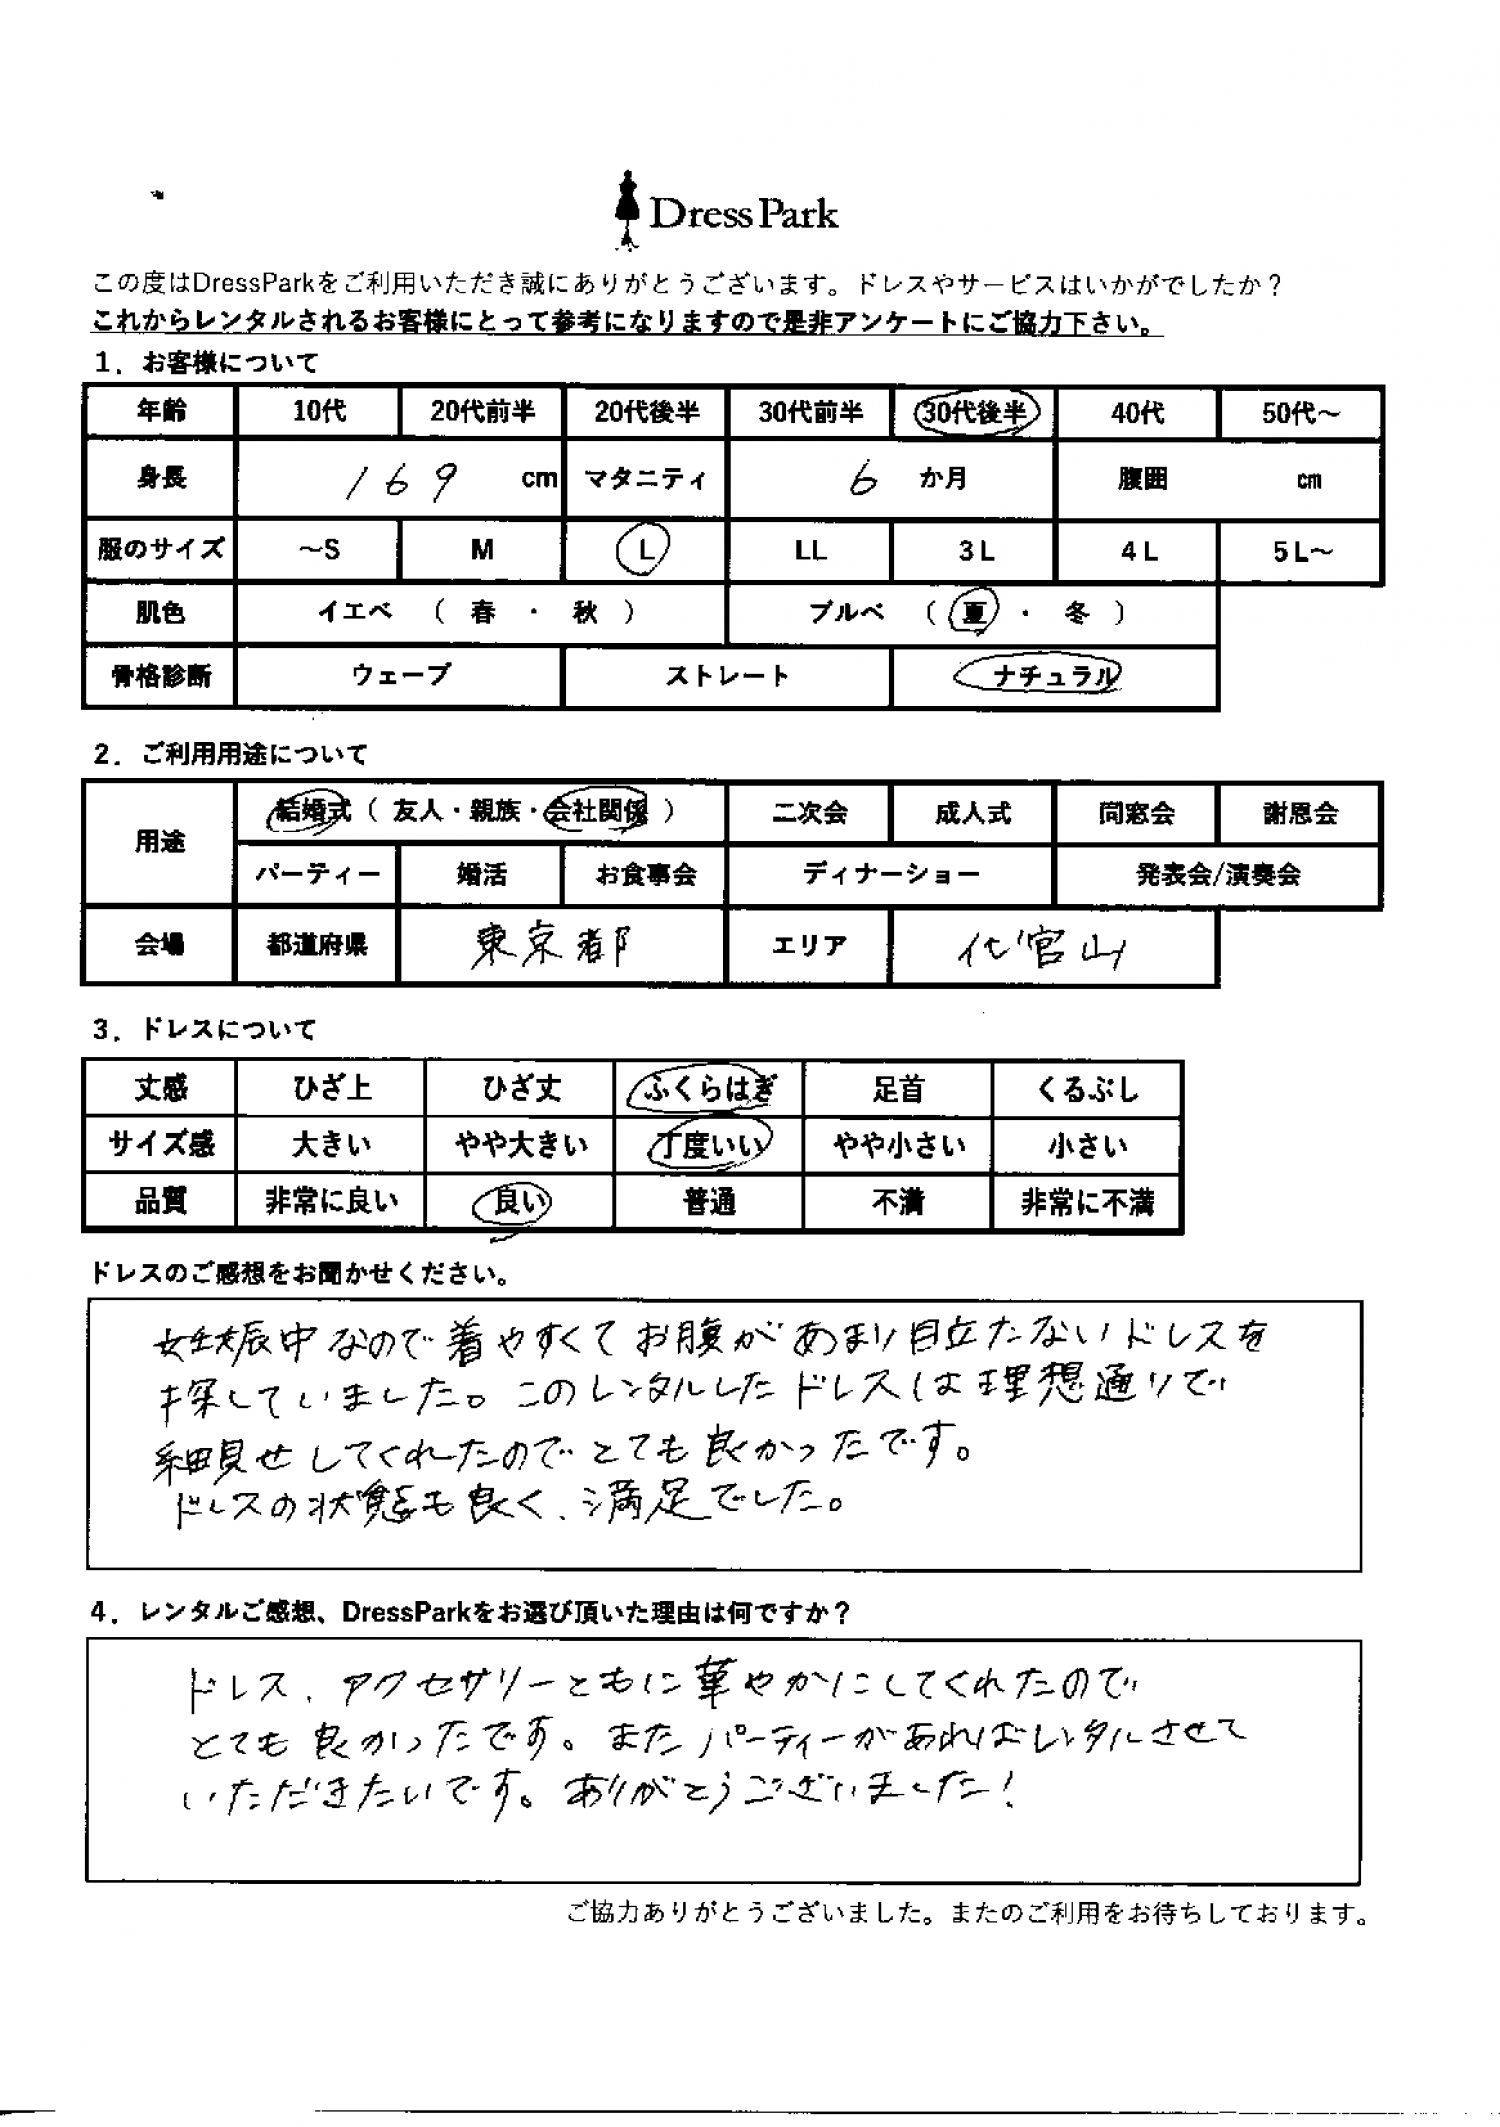 DressPark
この度はDressParkをご利用いただき誠にありがとうございます。ドレスやサービスはいかがでしたか？
これからレンタルされるお客様にとって参考になりますので是非アンケートにご協力下さい。
1．お客様について
年齢 10代 20代前半 20代後半 30代前半 30代後半 40代 50代～
身長 169 cm マタニティ 6 か月 腹囲 cm
服のサイズ ～S M L LL 3L 4L 5L～
肌色 イエベ （ 春 ・ 秋 ） ブルベ （ 夏 ・ 冬 ）
骨格診断 ウェーブ ストレート ナチュラル
2．ご利用用途について
用途 結婚式（ 友人・親族・会社関係 ） 二次会 成人式 同窓会 謝恩会
パーティー 婚活 お食事会 ディナーショー 発表会/演奏会
会場 都道府県 東京都 エリア 代官山
3．ドレスについて
丈感 ひざ上 ひざ丈 ふくらはぎ 足首 くるぶし
サイズ感 大きい やや大きい 丁度いい やや小さい 小さい
品質 非常に良い 良い 普通 不満 非常に不満
ドレスのご感想をお聞かせください。
妊娠中なので着やすくてお腹があまり目立たないドレスを
探していました。このレンタルしたドレスは理想通りで
細見せしてくれたのでとても良かったです。
ドレスの状態も良く、満足でした。
4．レンタルご感想、DressParkをお選び頂いた理由は何ですか？
ドレス、アクセサリーともに華やかにしてくれたので
とても良かったです。またパーティーがあればレンタルさせて
いただきたいです。ありがとうございました！
ご協力ありがとうございました。またのご利用をお待ちしております。